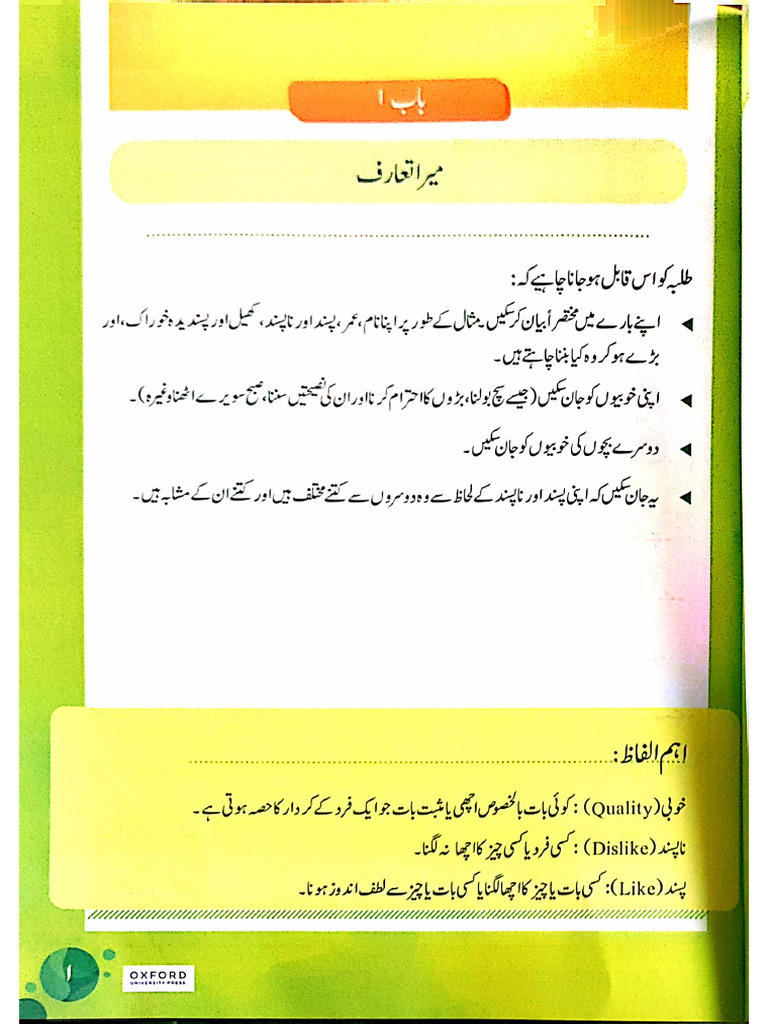 باب ۱
میرا تعارف
طلبہ کو اس قابل ہو جانا چاہیے کہ:
◀ اپنے بارے میں مختصراً بیان کر سکیں۔ مثال کے طور پر اپنا نام، عمر، پسند اور ناپسند، کھیل اور پسندیدہ خوراک، اور
بڑے ہو کر وہ کیا بننا چاہتے ہیں۔
◀ اپنی خوبیوں کو جان سکیں (جیسے سچ بولنا، بڑوں کا احترام کرنا اور ان کی نصیحتیں سننا، صبح سویرے اٹھنا وغیرہ)۔
◀ دوسرے بچوں کی خوبیوں کو جان سکیں۔
◀ یہ جان سکیں کہ اپنی پسند اور ناپسند کے لحاظ سے وہ دوسروں سے کتنے مختلف ہیں اور کتنے ان کے مشابہ ہیں۔
اہم الفاظ:
خوبی (Quality): کوئی بات بالخصوص اچھی یا مثبت بات جو ایک فرد کے کردار کا حصہ ہوتی ہے۔
ناپسند (Dislike): کسی فرد یا کسی چیز کا اچھا نہ لگنا۔
پسند (Like): کسی بات یا چیز کا اچھا لگنا یا کسی بات یا چیز سے لطف اندوز ہونا۔
۱
OXFORD
UNIVERSITY PRESS